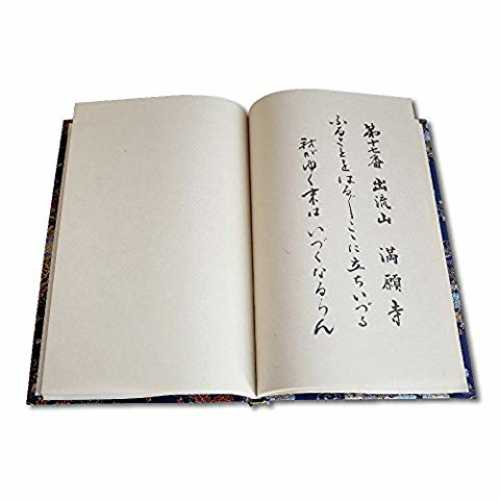 第十七番 出流山 満願寺
ふるさとをはる〴〵ここに立ちいづる
我がゆく末はいづくなるらん